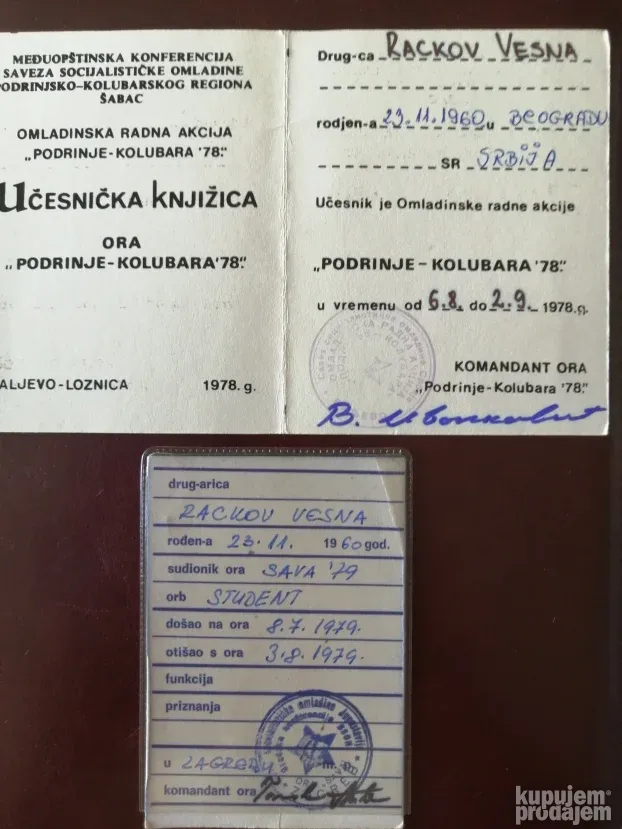 MEĐUOPŠTINSKA KONFERENCIJA
SAVEZA SOCIJALISTIČKE OMLADINE
PODRINJSKO-KOLUBARSKOG REGIONA
ŠABAC
OMLADINSKA RADNA AKCIJA
„PODRINJE-KOLUBARA '78."
UČESNIČKA KNJIŽICA
ORA
„PODRINJE-KOLUBARA'78."
ALJEVO-LOZNICA 1978. g.
Drug-ca RACKOV VESNA
rodjen-a 23.11.1960 u BEOGRADU
SR SRBIJA
Učesnik je Omladinske radne akcije
„PODRINJE-KOLUBARA '78."
u vremenu od 6.8. do 2.9. 1978.g.
KOMANDANT ORA
„Podrinje-Kolubara '78."
drug-arica
RACKOV VESNA
rođen-a 23.11. 1960 god.
sudionik ora SAVA '79
orb STUDENT
došao na ora 8.7.1979.
otišao s ora 3.8.1979.
funkcija
priznanja
u ZAGREBU
komandant ora
kupujem
prodajem